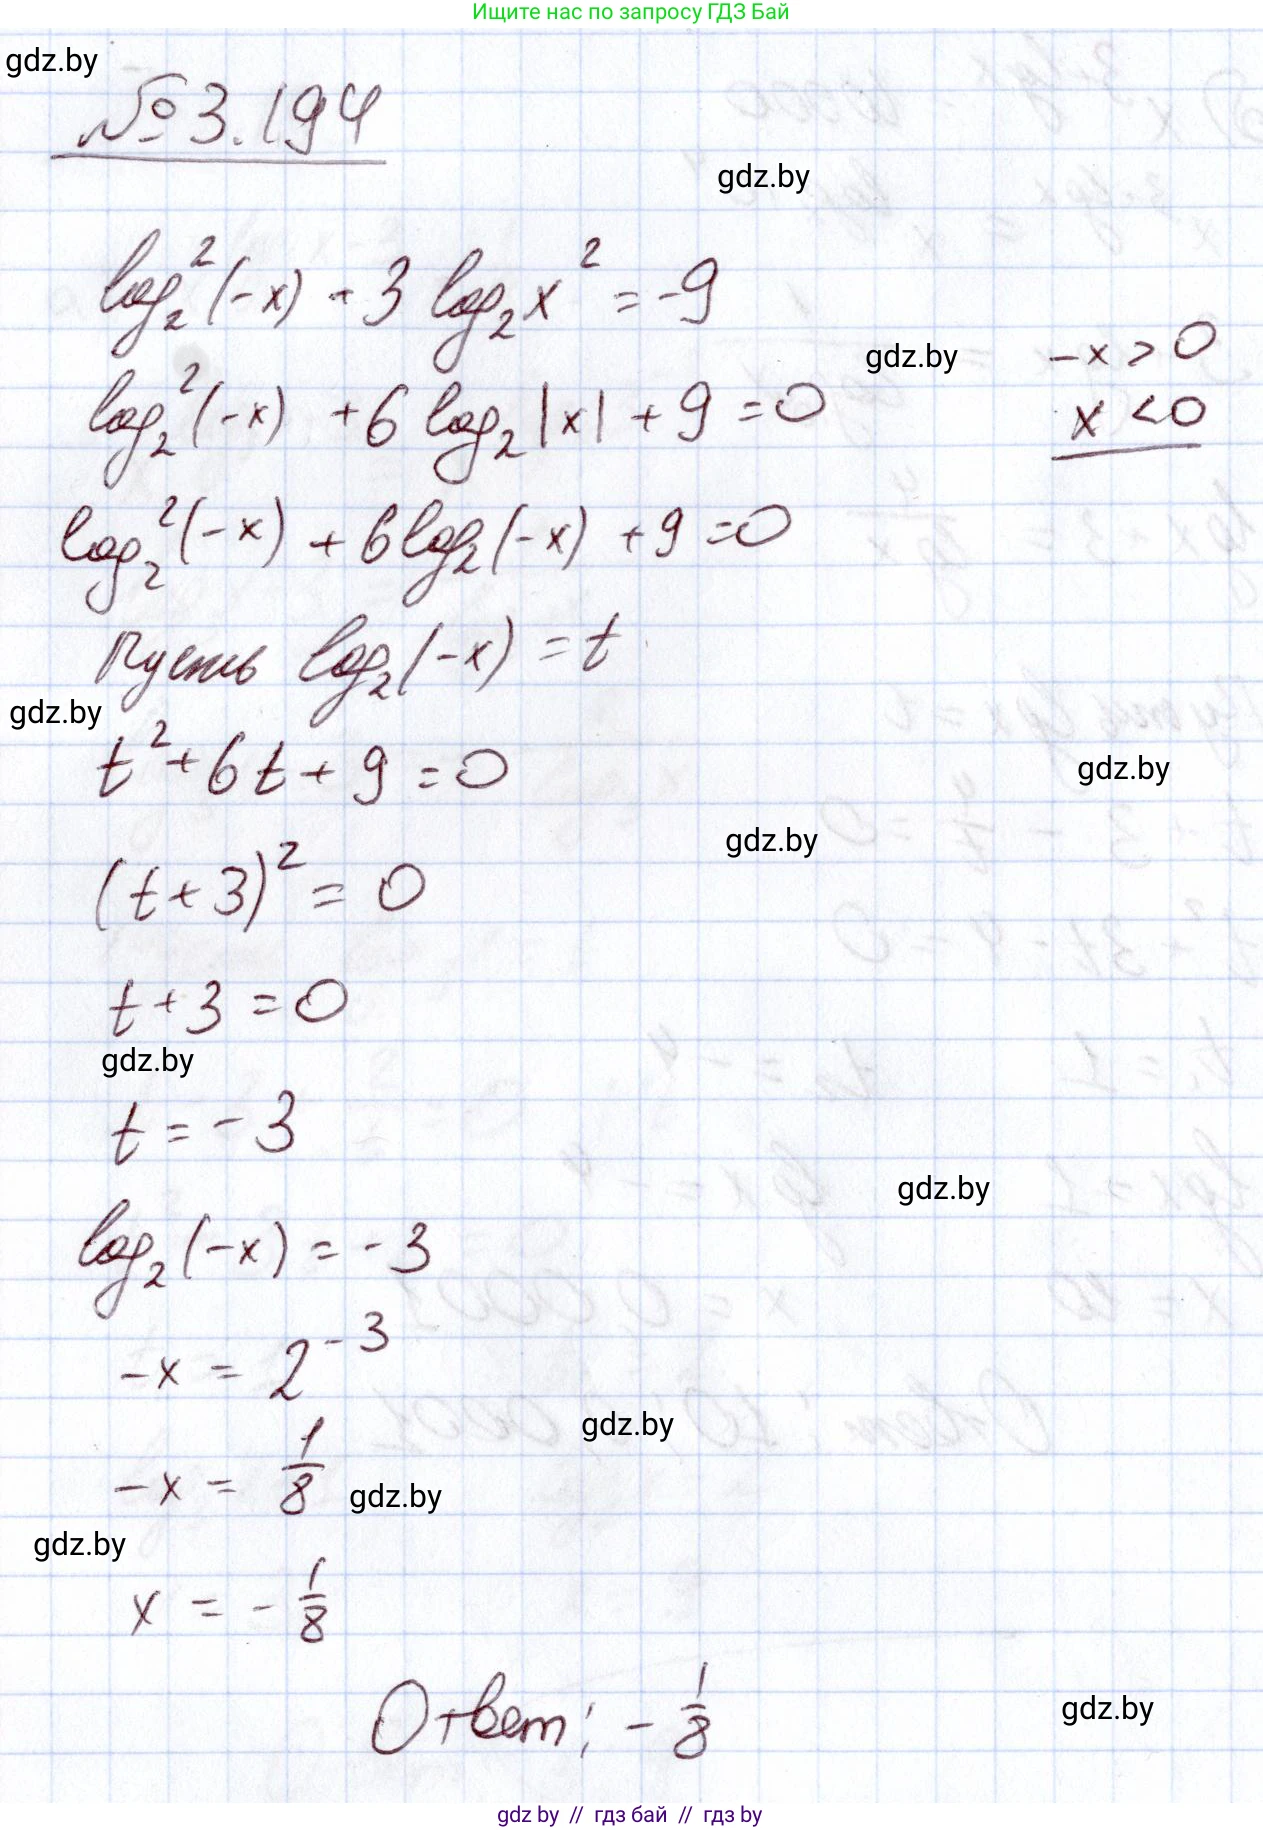 Ищите нас по запросу ГДЗ Бай
gdz.by
№3.194
gdz.by
log₂²(-x) + 3 log₂x² = -9
gdz.by
-x > 0
log₂²(-x) + 6 log₂|x| + 9 = 0
x < 0
log₂²(-x) + 6log₂(-x) + 9 = 0
Пусть log₂(-x) = t
gdz.by
t² + 6t + 9 = 0
gdz.by
gdz.by
(t + 3)² = 0
t + 3 = 0
gdz.by
t = -3
gdz.by
log₂(-x) = -3
-x = 2⁻³
gdz.by
-x = 1/8
gdz.by
gdz.by
x = -1/8
Ответ: -1/8
gdz.by
gdz by // гдз бай // гдз by